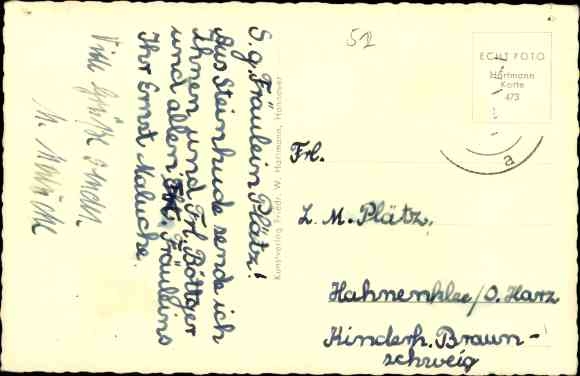 S. g. Fräulein Plätz!
Aus Steinhude sende ich
Ihnen und Frl. Böttger
und allen Fräuleins
Ihr Ernst Maluche.
Viele Grüße
M.
Kunstverlag Friedr. W. Hartmann, Hannover
52
ECHT FOTO
Hartmann
Karte
473
a
Frl.
L. M. Plätz,
Hahnenklee/O. Harz
Kinderh. Braun-
schweig